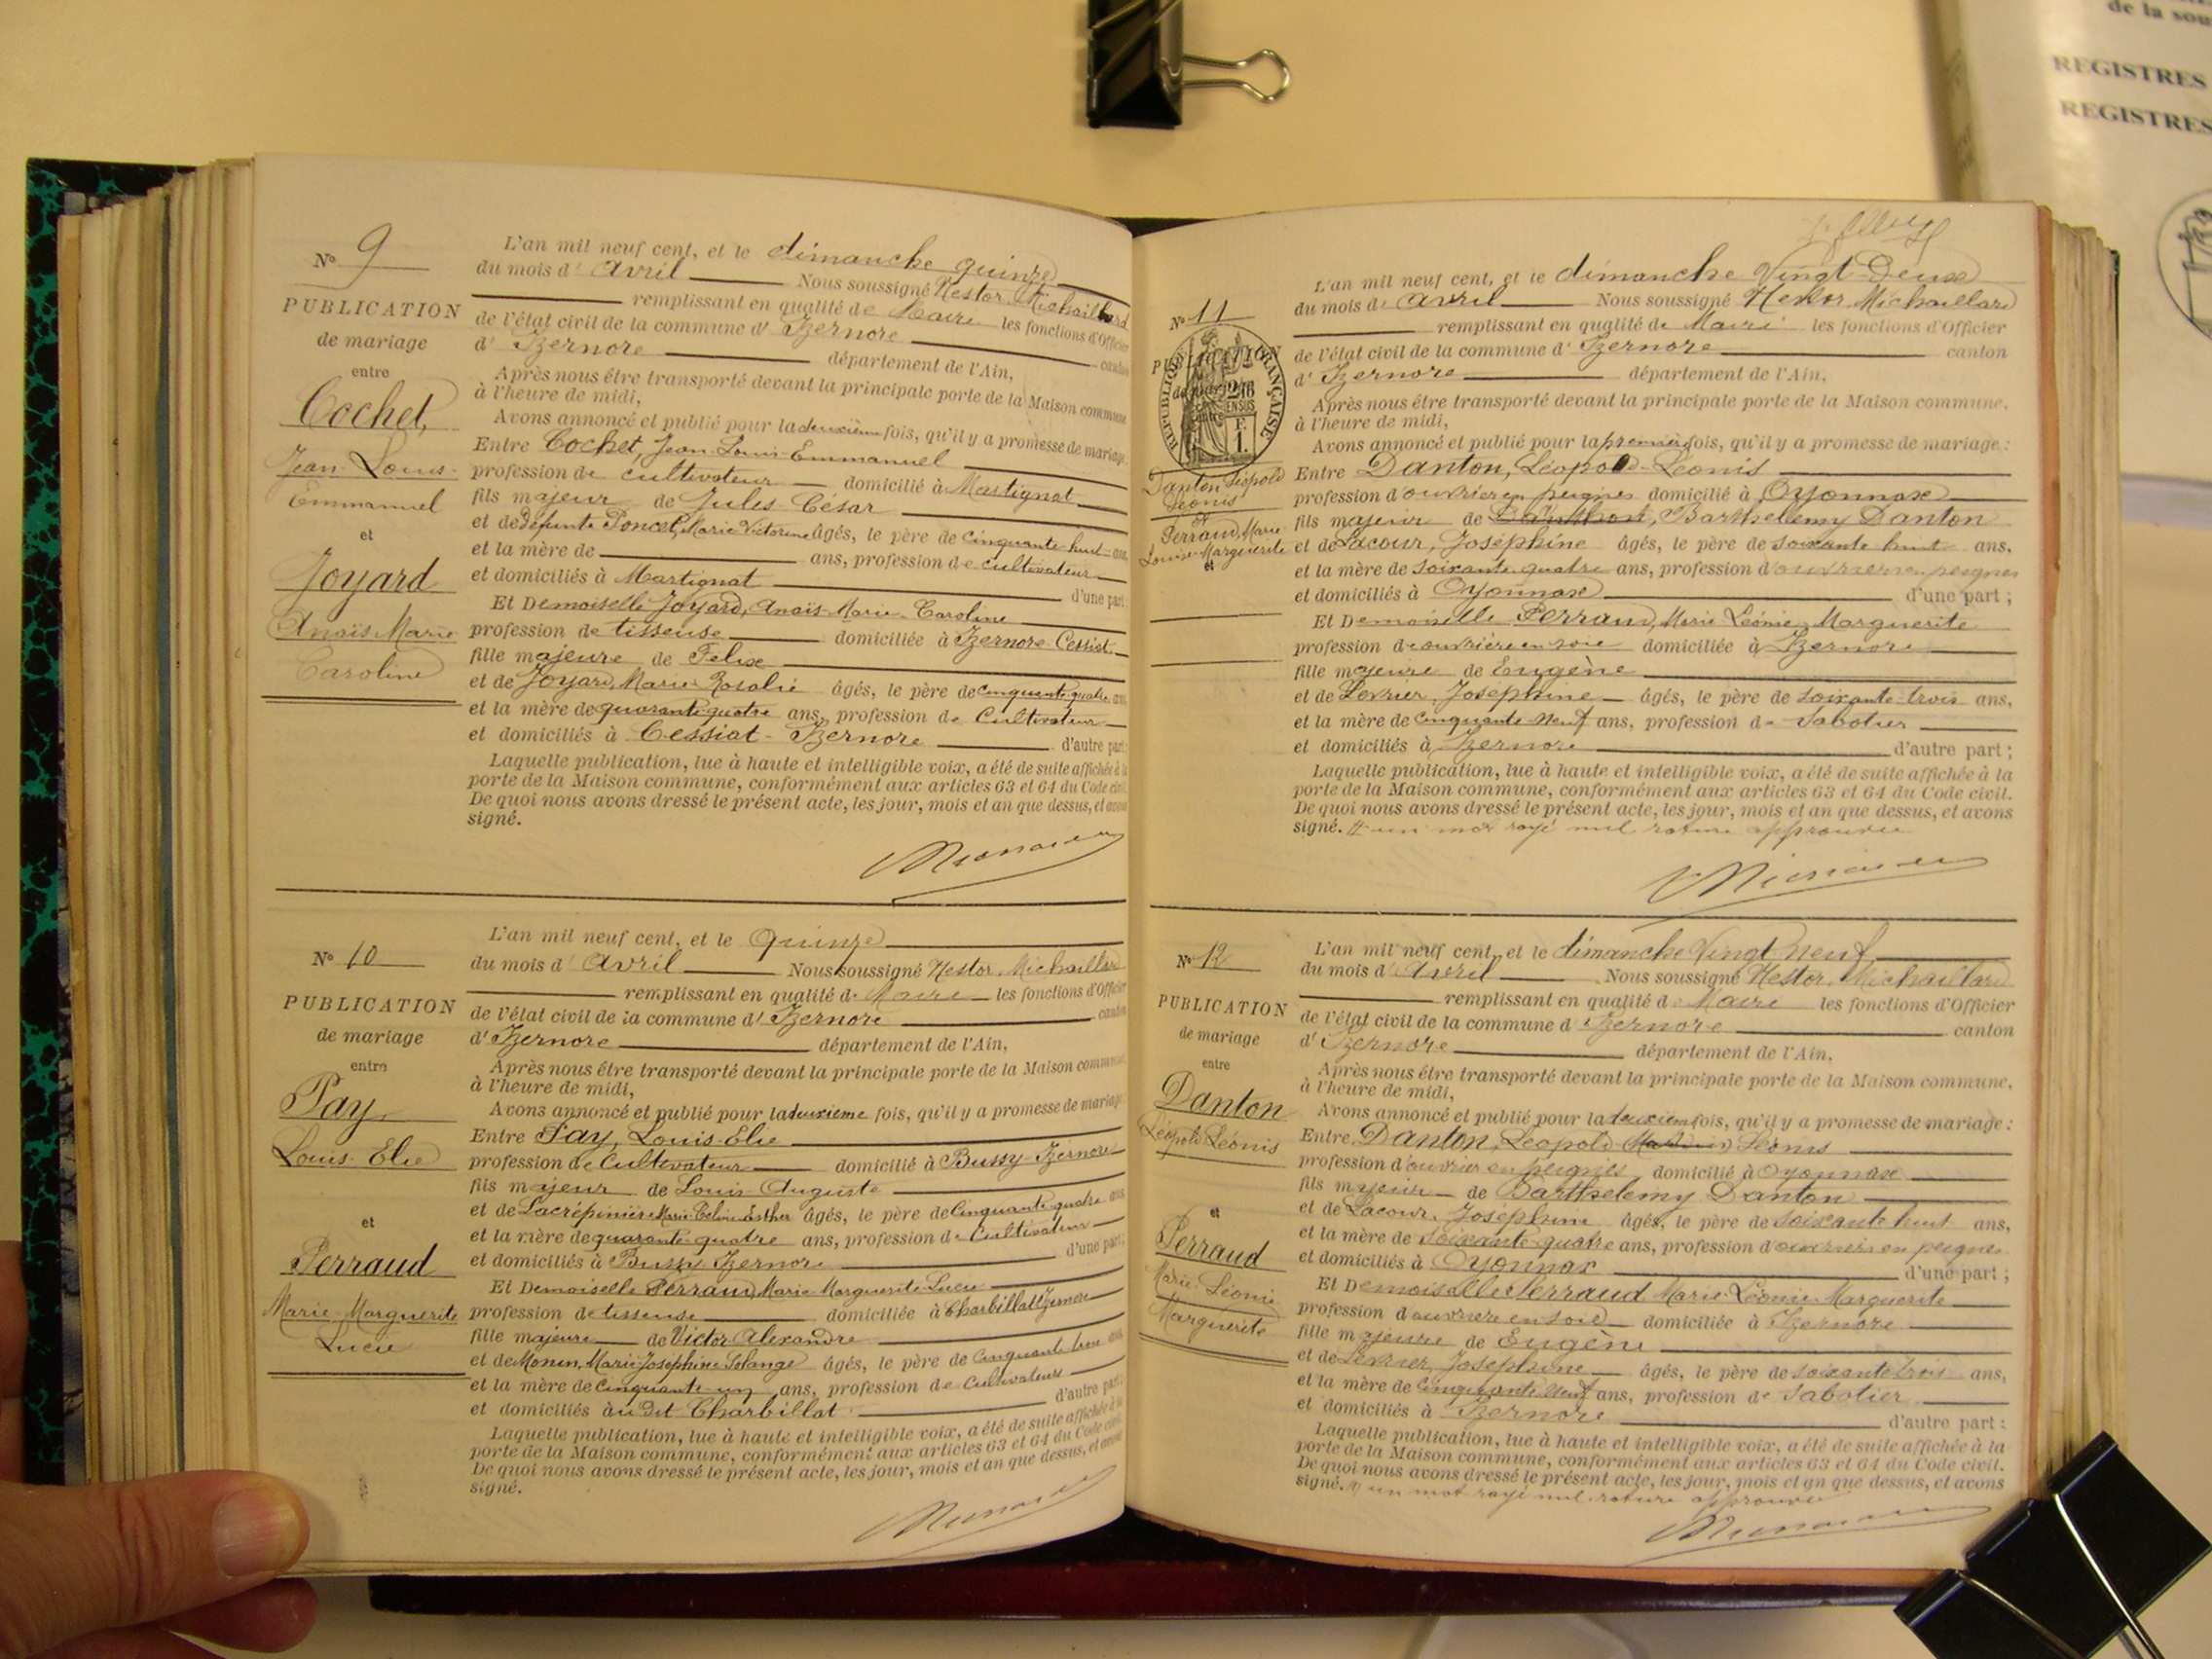 de la sou
REGISTRES
REGISTRES
N° 9
PUBLICATION
de mariage
entre
Cochet,
Jean-Louis-
Emmanuel
et
Joyard
Anaïs Marie
Caroline
L'an mil neuf cent, et le dimanche quinze
du mois d' avril Nous soussigné Nestor Michaillard
remplissant en qualité de Maire les fonctions d'Officier
de l'état civil de la commune d' Izernore canton
d' Izernore département de l'Ain,
Après nous être transporté devant la principale porte de la Maison commune
à l'heure de midi,
Avons annoncé et publié pour la deuxième fois, qu'il y a promesse de mariage
Entre Cochet, Jean-Louis-Emmanuel
profession de cultivateur domicilié à Martignat
fils majeur de Jules César
et de défunte Poncet, Marie Victorine âgés, le père de cinquante-huit ans
et la mère de ans, profession de cultivateur
et domiciliés à Martignat d'une part
Et Demoiselle Joyard, Anaïs-Marie-Caroline
profession de tisseuse domiciliée à Izernore-Cessiat
fille majeure de Felix
et de Joyard, Marie Rosalie âgés, le père de cinquante-quatre ans
et la mère de quarante-quatre ans, profession de Cultivateur
et domiciliés à Cessiat-Izernore d'autre part
Laquelle publication, lue à haute et intelligible voix, a été de suite affichée à la
porte de la Maison commune, conformément aux articles 63 et 64 du Code civil.
De quoi nous avons dressé le présent acte, les jour, mois et an que dessus, et avons
signé.
N° 10
PUBLICATION
de mariage
entre
Pay,
Louis-Elie
et
Perraud
Marie-Marguerite
Lucie
L'an mil neuf cent, et le Quinze
du mois d' avril Nous soussigné Nestor Michaillard
remplissant en qualité de Maire les fonctions d'Officier
de l'état civil de la commune d' Izernore canton
d' Izernore département de l'Ain,
Après nous être transporté devant la principale porte de la Maison commune,
à l'heure de midi,
Avons annoncé et publié pour la deuxième fois, qu'il y a promesse de mariage
Entre Pay, Louis-Elie
profession de Cultivateur domicilié à Bussy-Izernore
fils majeur de Louis-Auguste
et de Lacrépinière Marie-Céline-Esther âgés, le père de Cinquante-quatre ans
et la mère de quarante-quatre ans, profession de Cultivateur
et domiciliés à Bussy Izernore d'une part;
Et Demoiselle Perraud, Marie-Marguerite-Lucie
profession de tisseuse domiciliée à Charbillat Izernore
fille majeure de Victor Alexandre
et de Monin, Marie-Joséphine Solange âgés, le père de Cinquante trois ans
et la mère de Cinquante-un ans, profession de Cultivateurs
et domiciliés à au dit Charbillat d'autre part:
Laquelle publication, lue à haute et intelligible voix, a été de suite affichée à la
porte de la Maison commune, conformément aux articles 63 et 64 du Code civil
De quoi nous avons dressé le présent acte, les jour, mois et an que dessus, et avons
signé.
N° 11
RÉPUBLIQUE FRANÇAISE
Danton Léopold
Léonis
et
Perraud, Marie
Louise-Marguerite
L'an mil neuf cent, et le dimanche Vingt-Deux
du mois d' avril Nous soussigné Nestor Michaillard
remplissant en qualité de Maire les fonctions d'Officier
de l'état civil de la commune d' Izernore canton
d' Izernore département de l'Ain,
Après nous être transporté devant la principale porte de la Maison commune,
à l'heure de midi,
Avons annoncé et publié pour la première fois, qu'il y a promesse de mariage:
Entre Danton, Léopold-Leonis
profession d'ouvrier en peignes domicilié à Oyonnax
fils majeur de Barthelemy Danton
et de Lacour, Joséphine âgés, le père de soixante huit ans,
et la mère de soixante quatre ans, profession d'ouvriers en peignes
et domiciliés à Oyonnax d'une part;
Et Demoiselle Perraud, Marie Léonie Marguerite
profession d'ouvrière en soie domiciliée à Izernore
fille majeure de Eugène
et de Levrier, Joséphine âgés, le père de soixante-trois ans,
et la mère de cinquante-neuf ans, profession de Sabotier
et domiciliés à Izernore d'autre part;
Laquelle publication, lue à haute et intelligible voix, a été de suite affichée à la
porte de la Maison commune, conformément aux articles 63 et 64 du Code civil.
De quoi nous avons dressé le présent acte, les jour, mois et an que dessus, et avons
signé. un mot rayé nul rature approuvée
N° 12
PUBLICATION
de mariage
entre
Danton
Léopold Léonis
et
Perraud
Marie-Léonie
Marguerite
L'an mil neuf cent, et le dimanche Vingt neuf
du mois d' Avril Nous soussigné Nestor Michaillard
remplissant en qualité de Maire les fonctions d'Officier
de l'état civil de la commune d' Izernore canton
d' Izernore département de l'Ain,
Après nous être transporté devant la principale porte de la Maison commune,
à l'heure de midi,
Avons annoncé et publié pour la deuxième fois, qu'il y a promesse de mariage:
Entre Danton, Léopold Léonis
profession d'ouvrier en peignes domicilié à Oyonnax
fils majeur de Barthelemy Danton
et de Lacour, Joséphine âgés, le père de soixante huit ans,
et la mère de soixante-quatre ans, profession d'ouvriers en peignes
et domiciliés à Oyonnax d'une part;
Et Demoiselle Perraud Marie-Léonie-Marguerite
profession d'ouvrière en soie domiciliée à Izernore
fille majeure de Eugène
et de Levrier, Joséphine âgés, le père de soixante trois ans,
et la mère de cinquante neuf ans, profession de Sabotier
et domiciliés à Izernore d'autre part:
Laquelle publication, lue à haute et intelligible voix, a été de suite affichée à la
porte de la Maison commune, conformément aux articles 63 et 64 du Code civil.
De quoi nous avons dressé le présent acte, les jour, mois et an que dessus, et avons
signé. un mot rayé nul rature approuvée